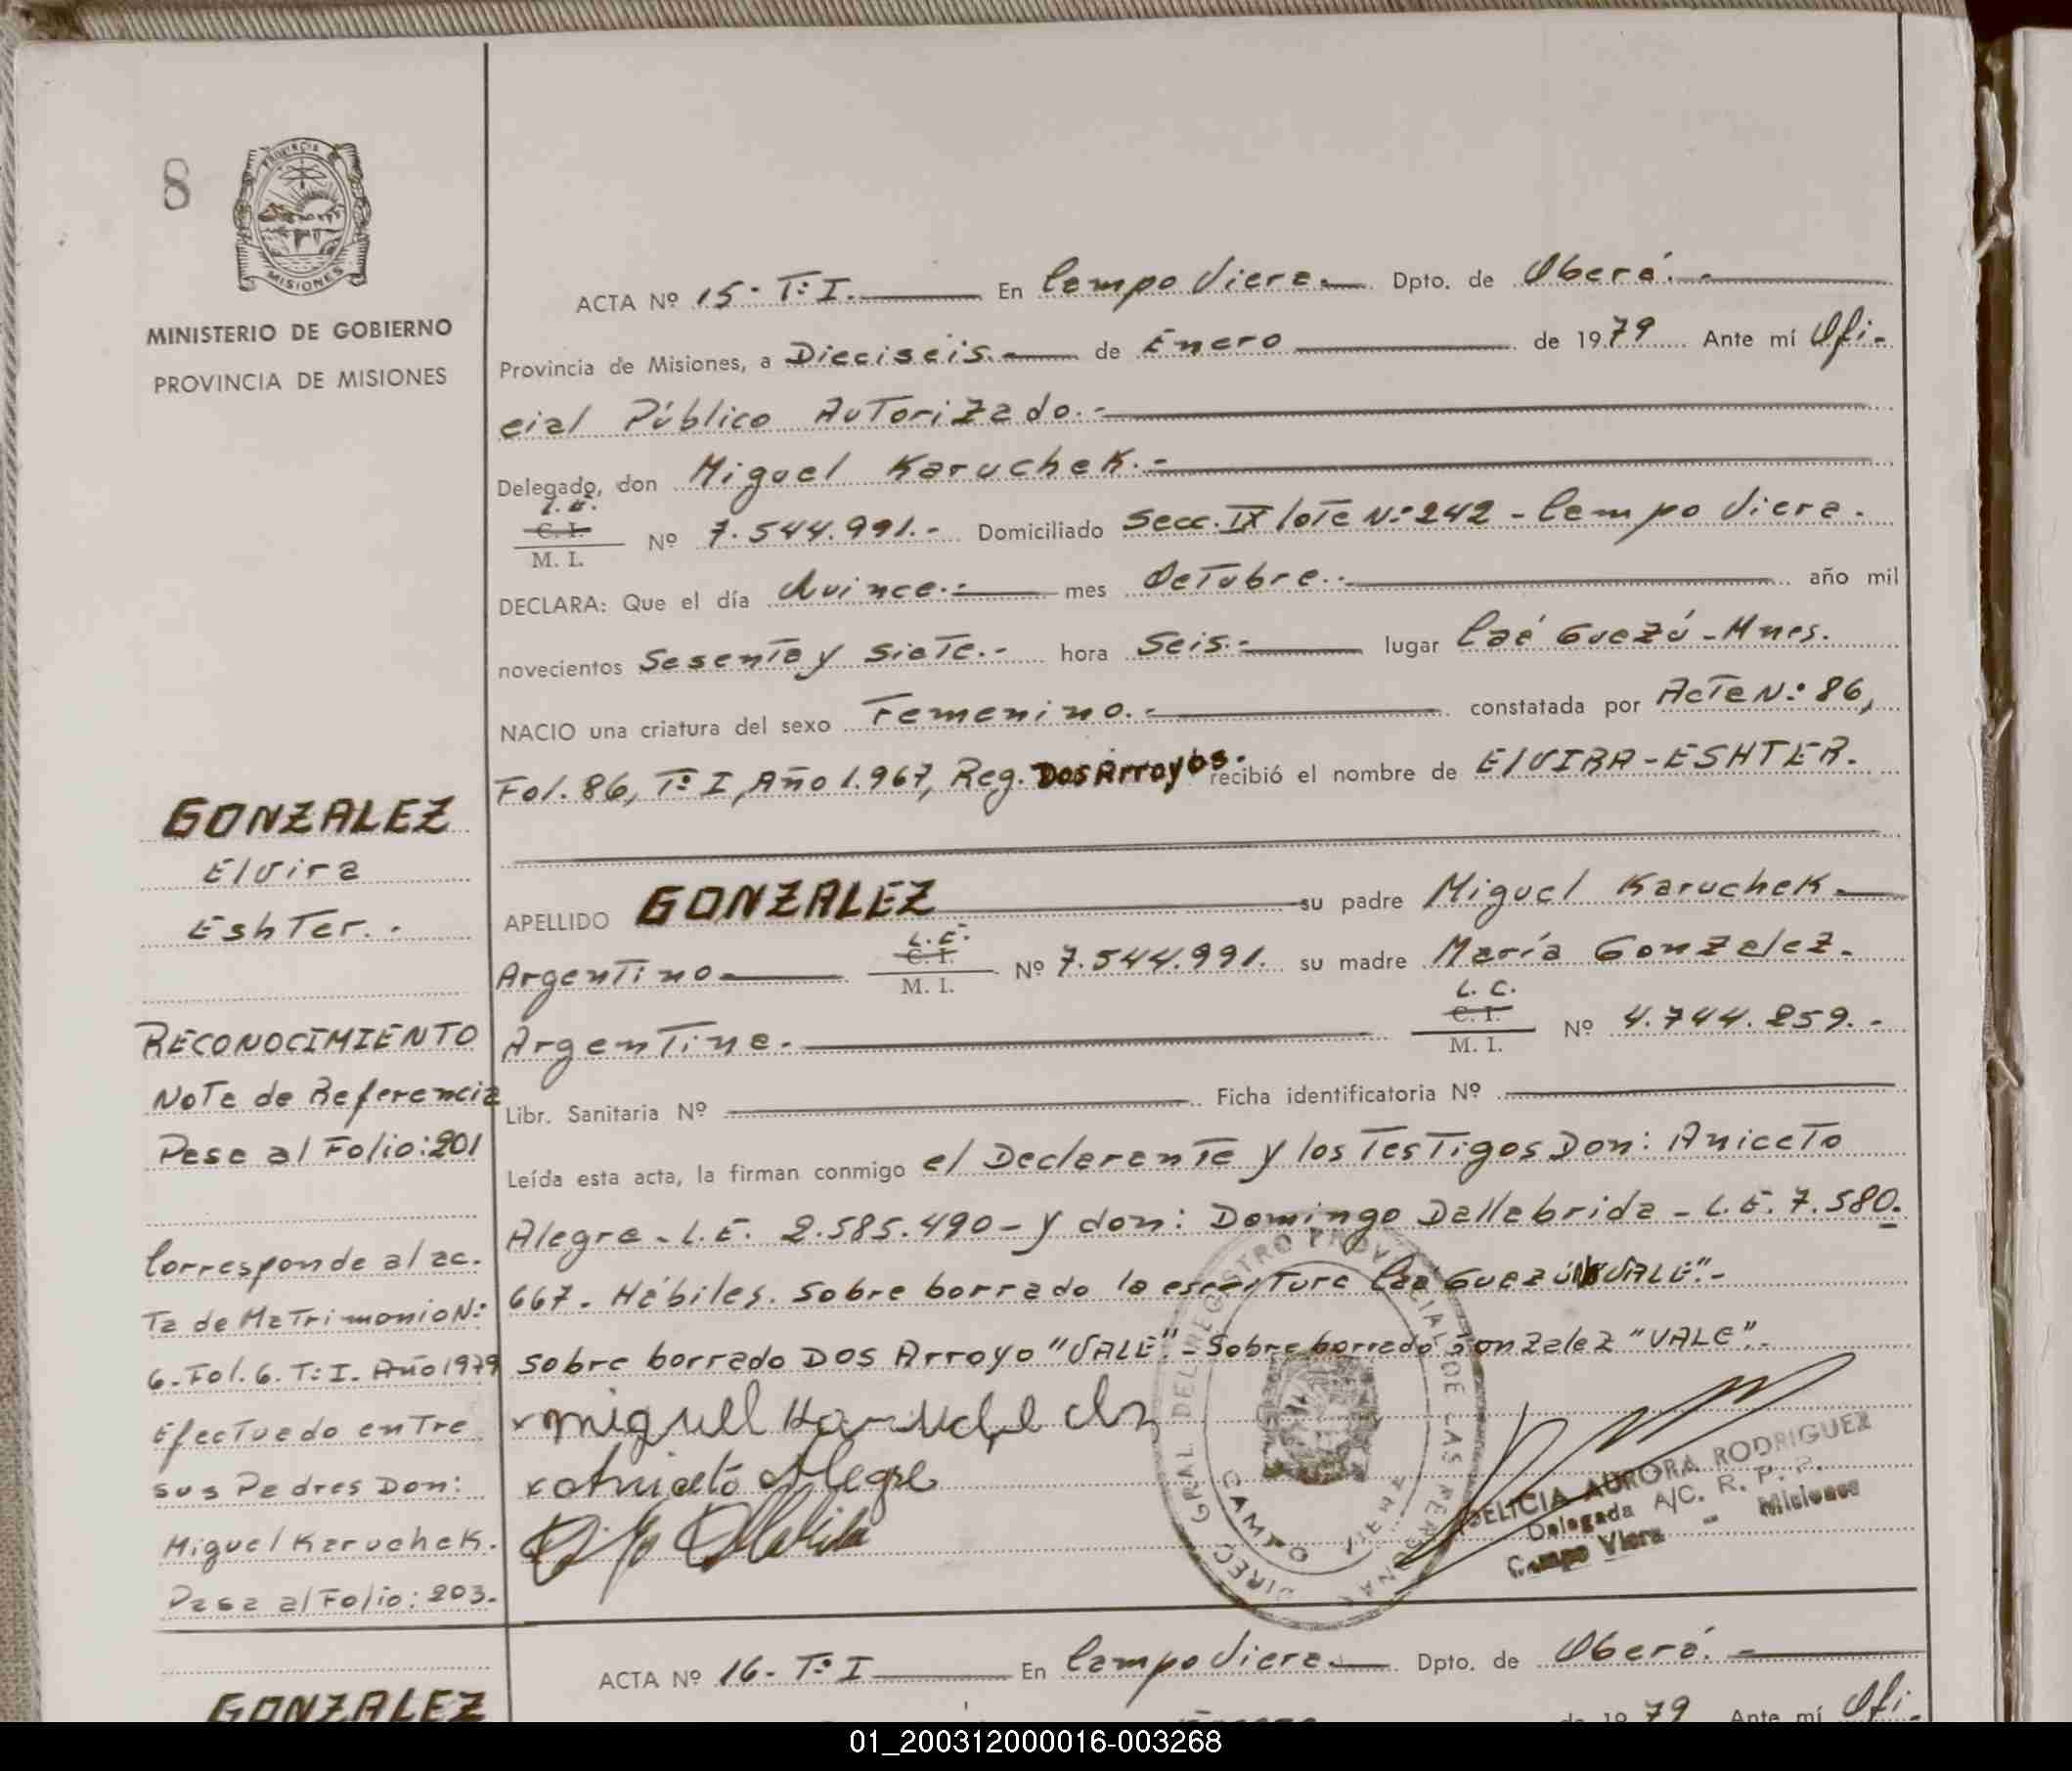 8
PROVINCIA DE
MISIONES
MINISTERIO DE GOBIERNO
PROVINCIA DE MISIONES
GONZALEZ
Elvira
EshTer.-
RECONOCIMIENTO
Nota de Referencia
Pasa al Folio: 201
Corresponde al ac.
Ta de MaTrimonio N:
6. Fol. 6. T: I. Año 1979
EfecTuado enTre
sus Padres Don:
Miguel Karuchek.
Pasa al Folio: 203.
ACTA Nº 15- Tº I. En Campo Viera Dpto. de Oberá.-
Provincia de Misiones, a Dieciseis.- de Enero de 1979 Ante mí Ofi-
cial Público AuTorizado.-
Delegado, don Miguel Karuchek.-
C. I.
M. I. Nº 7.544.991.- Domiciliado Secc. IX loTe Nº 242 - Campo Viera.
DECLARA: Que el día Quince.- mes OcTubre.- año mil
novecientos SesenTa y SieTe.- hora Seis.- lugar Caá Guazú - Mnes.
NACIO una criatura del sexo Femenino.- constatada por AcTa Nº 86,
Fol. 86, Tº I, Año 1.967, Reg. Dos Arroyos. recibió el nombre de ElVIRA-ESHTER.
APELLIDO GONZALEZ su padre Miguel Karuchek
L. E.
C. I.
ArgenTino M. I. Nº 7.544.991. su madre María Gonzalez.
L. C.
C. I.
ArgenTina.- M. I. Nº 4.744.259.-
Libr. Sanitaria Nº Ficha identificatoria Nº
Leída esta acta, la firman conmigo el DeclaranTe y los TesTigos Don: AniceTo
Alegre - L.E. 2.585.490 - y don: Domingo Dallabrida - L.E. 7.580.
667. Hábiles. Sobre borrado la escriTura Caa Guazú "VALE".-
Sobre borrado Dos Arroyo "VALE".- Sobre borrado Gonzalez "VALE".-
x Aniceto Alegre
DIREC. GRAL. DEL REGISTRO PROVINCIAL DE LAS PERSONAS
CAMPO VIERA
DELICIA AURORA RODRIGUEZ
Delegada A/C. R. P. P.
Campo Viera - Misiones
ACTA Nº 16- Tº I En Campo Viera Dpto. de Oberá.-
GONZALEZ
de 1979 Ante mí Ofi-
01_200312000016-003268